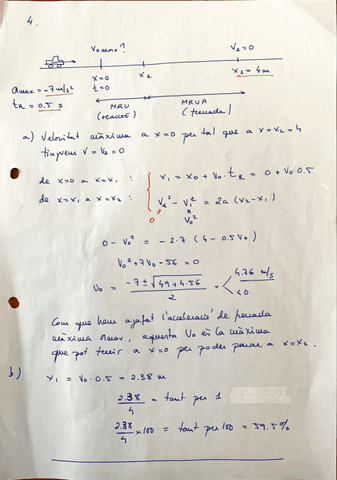 4.
v₀ màx?
v₂=0
x=0
t=0
x₁
x₂=4m
amax=-7m/s²
tR=0.5 s
MRU
(reacció)
MRUA
(frenada)
a) Velocitat màxima a x=0 per tal que a x=x₂=4
tinguem v=v₂=0
de x=0 a x=x₁ : x₁ = x₀ + v₀·tR = 0+v₀·0.5
de x=x₁ a x=x₂ : v₂² - v₁² = 2a(x₂-x₁)
0 v₀²
0-v₀² = -2·7 (4-0.5v₀)
v₀²+7v₀-56=0
v₀ = -7±√49+4·56 / 2 = 4.76 m/s
<0
Com que hem agafat l'acceleració de frenada
màxima amax, aquesta v₀ és la màxima
que pot tenir a x=0 per poder parar a x=x₂.
b) x₁ = v₀·0.5 = 2.38 m
2.38/4 = tant per 1
2.38/4 x100 = tant per 100 = 59.5%